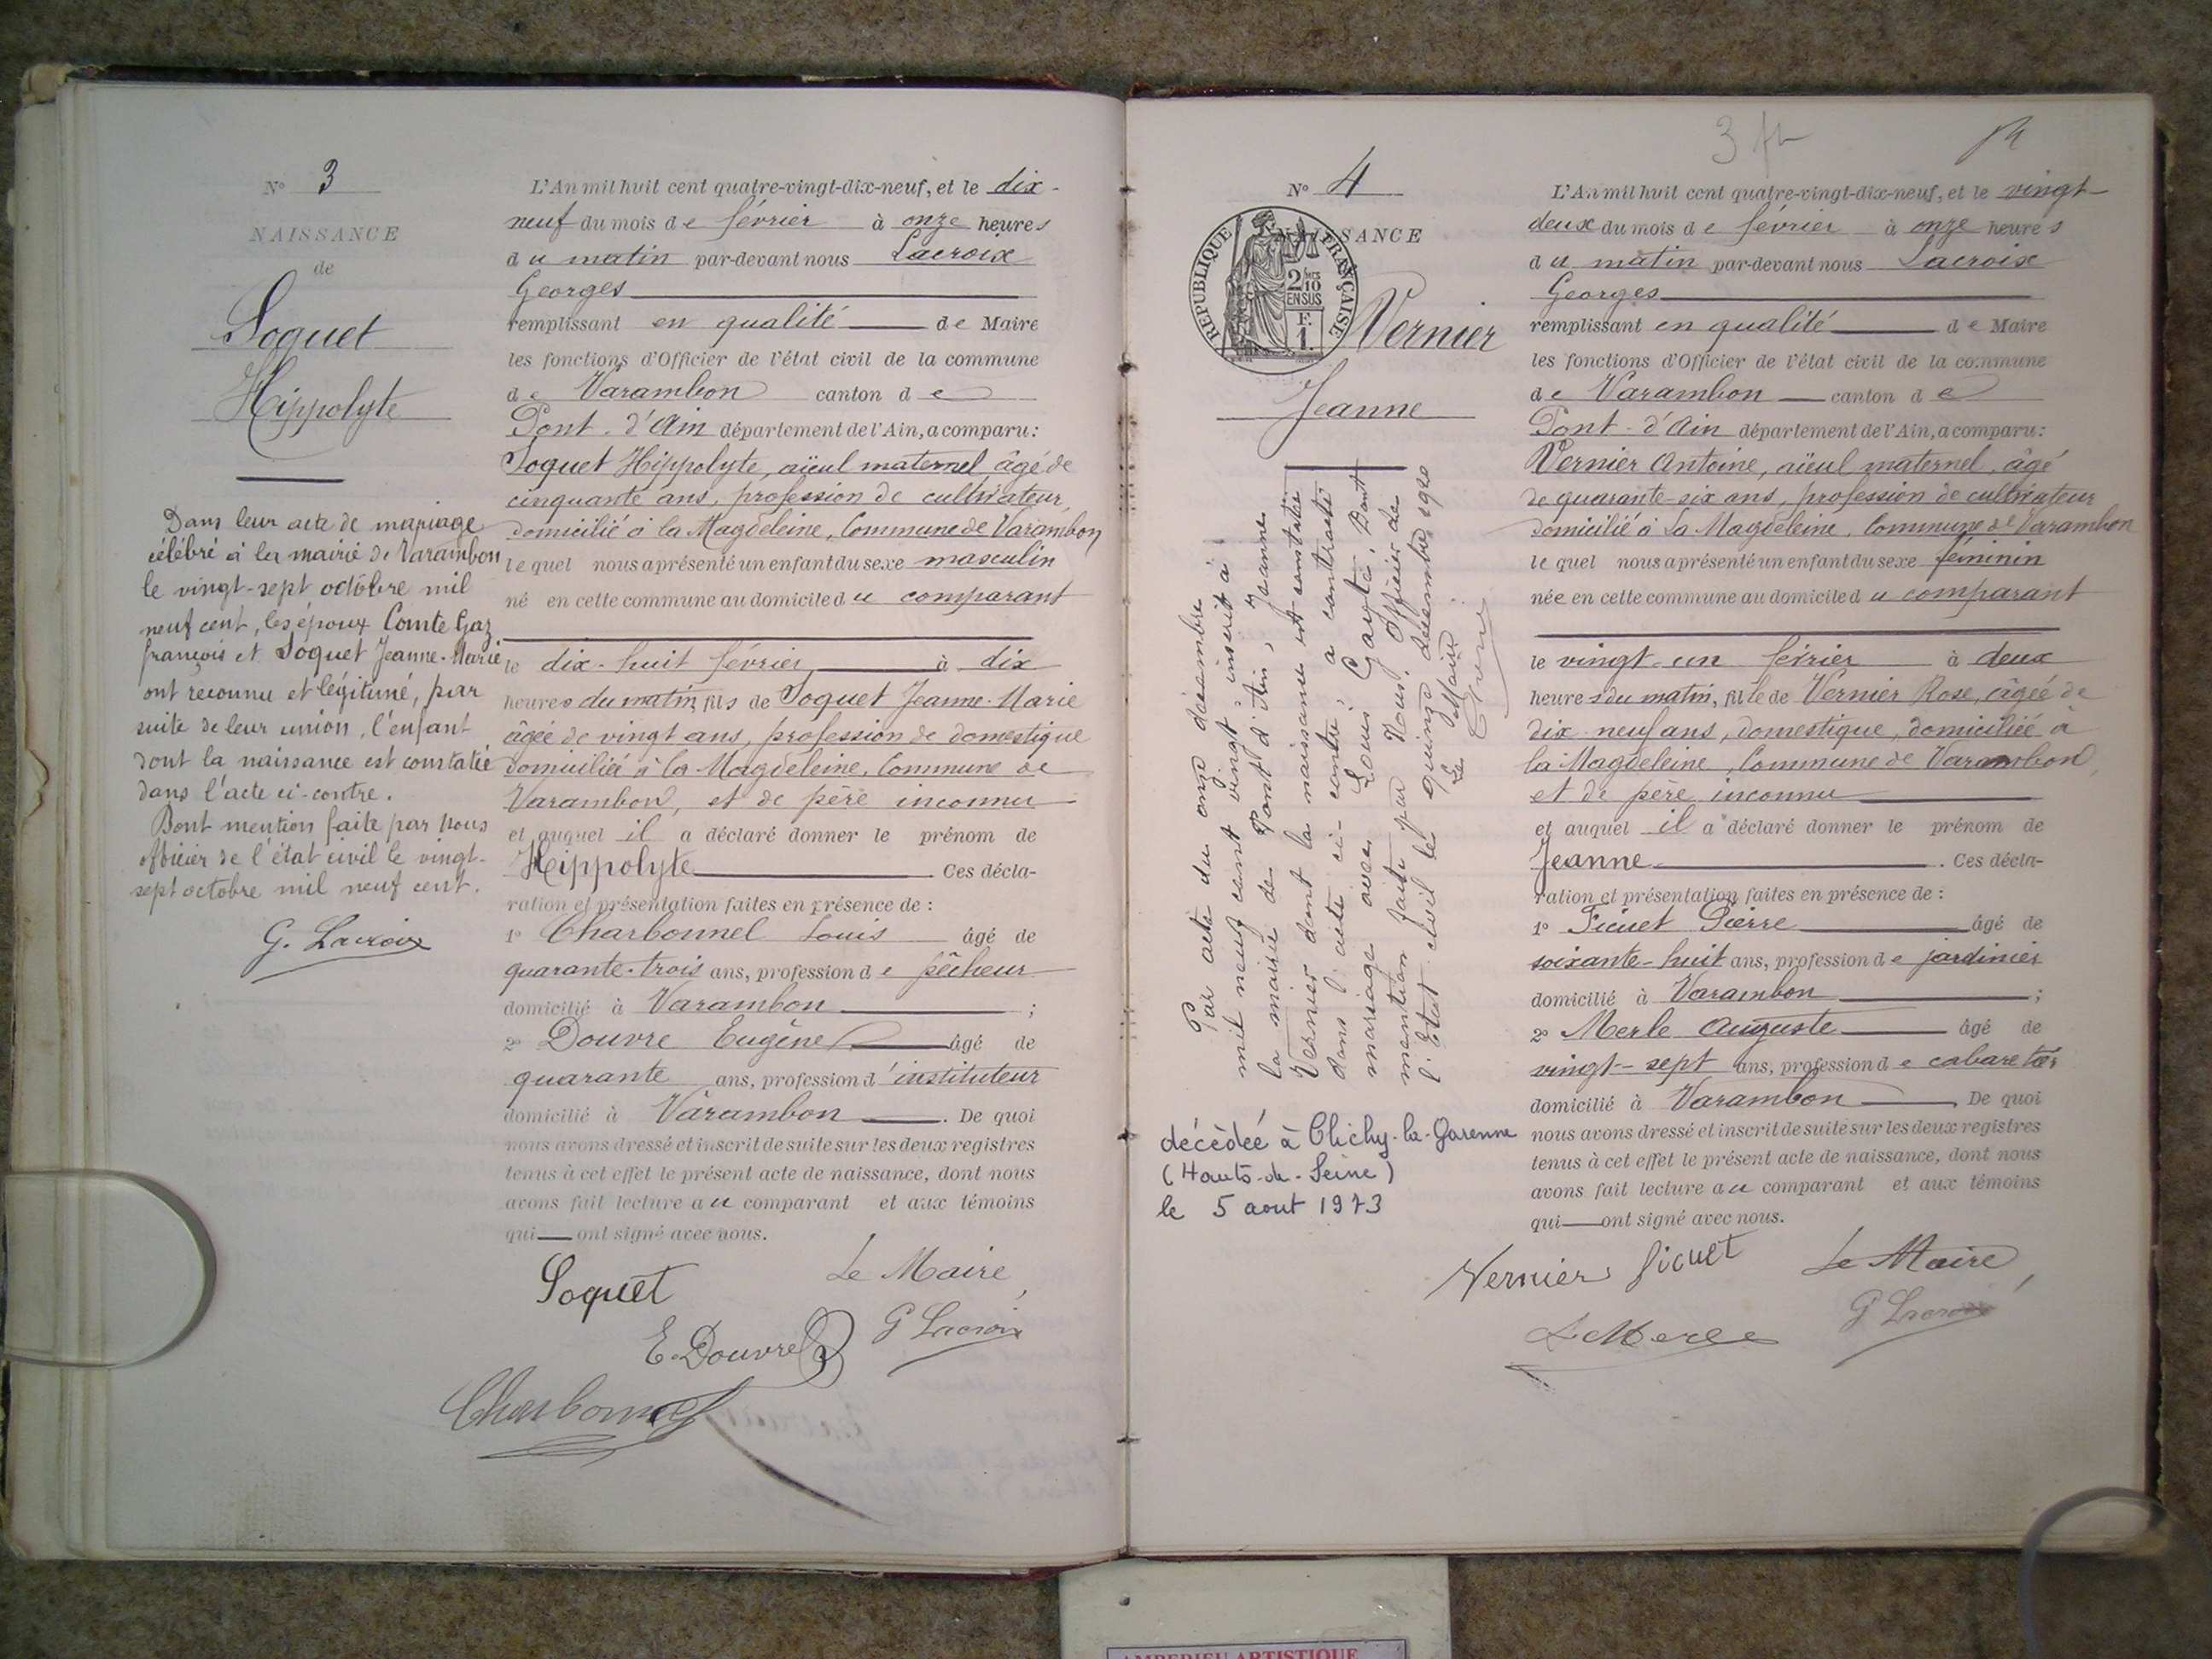 N° 3
NAISSANCE
de
Soquet
Hippolyte
Dans leur acte de mariage
célébré à la mairie de Varambon
le vingt-sept octobre mil
neuf cent, les époux Comte Gaz
françois et Soquet Jeanne-Marie
ont reconnu et légitimé, par
suite de leur union, l'enfant
dont la naissance est constatée
dans l'acte ci-contre.
Dont mention faite par nous
officier de l'état civil le vingt-
sept octobre mil neuf cent.
G. Lacroix
L'An mil huit cent quatre-vingt-dix-neuf, et le dix-
neuf du mois de février à onze heures
du matin par-devant nous Lacroix
Georges
remplissant en qualité de Maire
les fonctions d'Officier de l'état civil de la commune
de Varambon canton de
Pont-d'Ain département de l'Ain, a comparu:
Soquet Hippolyte, aïeul maternel âgé de
cinquante ans, profession de cultivateur,
domicilié à la Magdeleine, Commune de Varambon
lequel nous a présenté un enfant du sexe masculin
né en cette commune au domicile du comparant
le dix-huit février à dix
heures du matin, fils de Soquet Jeanne-Marie
âgée de vingt ans, profession de domestique
domiciliée à la Magdeleine, Commune de
Varambon, et de père inconnu
et auquel il a déclaré donner le prénom de
Hippolyte. Ces décla-
ration et présentation faites en présence de :
1° Charbonnel Louis âgé de
quarante-trois ans, profession de pêcheur
domicilié à Varambon ;
2° Douvre Eugène âgé de
quarante ans, profession d'instituteur
domicilié à Varambon. De quoi
nous avons dressé et inscrit de suite sur les deux registres
tenus à cet effet le présent acte de naissance, dont nous
avons fait lecture au comparant et aux témoins
qui ont signé avec nous.
Soquet Le Maire,
E. Douvre G Lacroix
Charbonnel
N° 4
NAISSANCE
REPUBLIQUE FRANÇAISE
2/10
EN SUS
F.
1.
Vernier
Jeanne
Par acte du onze décembre
mil neuf cent vingt, inscrit à
la mairie de Pont d'Ain, Jeanne
Vernier dont la naissance est constatée
dans l'acte ci-contre, a contracté
mariage avec Louis Dont
mention faite par Nous, Officier de
l'Etat-civil le quinze décembre 1920
Le Maire
décédée à Clichy-la-Garenne
(Hauts-de-Seine)
le 5 aout 1973
L'An mil huit cent quatre-vingt-dix-neuf, et le vingt-
deux du mois de février à onze heures
du matin par-devant nous Lacroix
Georges
remplissant en qualité de Maire
les fonctions d'Officier de l'état civil de la commune
de Varambon canton de
Pont-d'Ain département de l'Ain, a comparu:
Vernier Antoine, aïeul maternel, âgé
de quarante-six ans, profession de cultivateur
domicilié à La Magdeleine, Commune de Varambon
lequel nous a présenté un enfant du sexe féminin
née en cette commune au domicile du comparant
le vingt-un février à deux
heures du matin, fille de Vernier Rose, âgée de
dix-neuf ans, domestique, domiciliée à
la Magdeleine, Commune de Varambon,
et de père inconnu
et auquel il a déclaré donner le prénom de
Jeanne. Ces décla-
ration et présentation faites en présence de :
1° Ficuet Pierre âgé de
soixante-huit ans, profession de jardinier
domicilié à Varambon ;
2° Merle Auguste âgé de
vingt-sept ans, profession de cabaretier
domicilié à Varambon. De quoi
nous avons dressé et inscrit de suite sur les deux registres
tenus à cet effet le présent acte de naissance, dont nous
avons fait lecture au comparant et aux témoins
qui ont signé avec nous.
Vernier Ficuet Le Maire,
Merle G Lacroix
AMBERIEU ARTISTIQUE